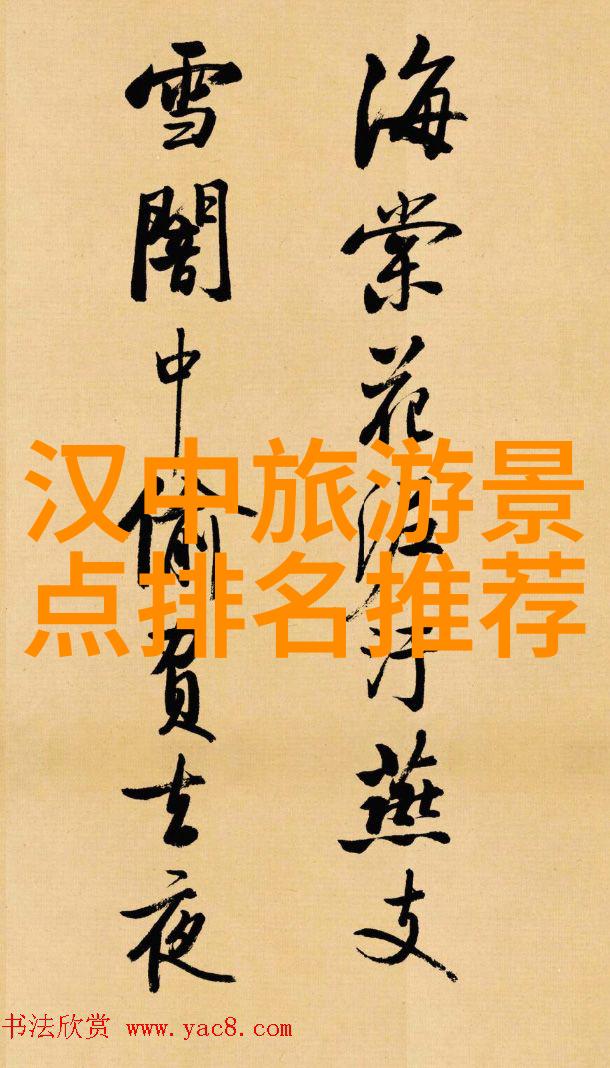 海棠花泥汙燕支
雪闇中偷負去夜
汉中旅游景
点排名推荐
书法欣赏 www.yac8.com